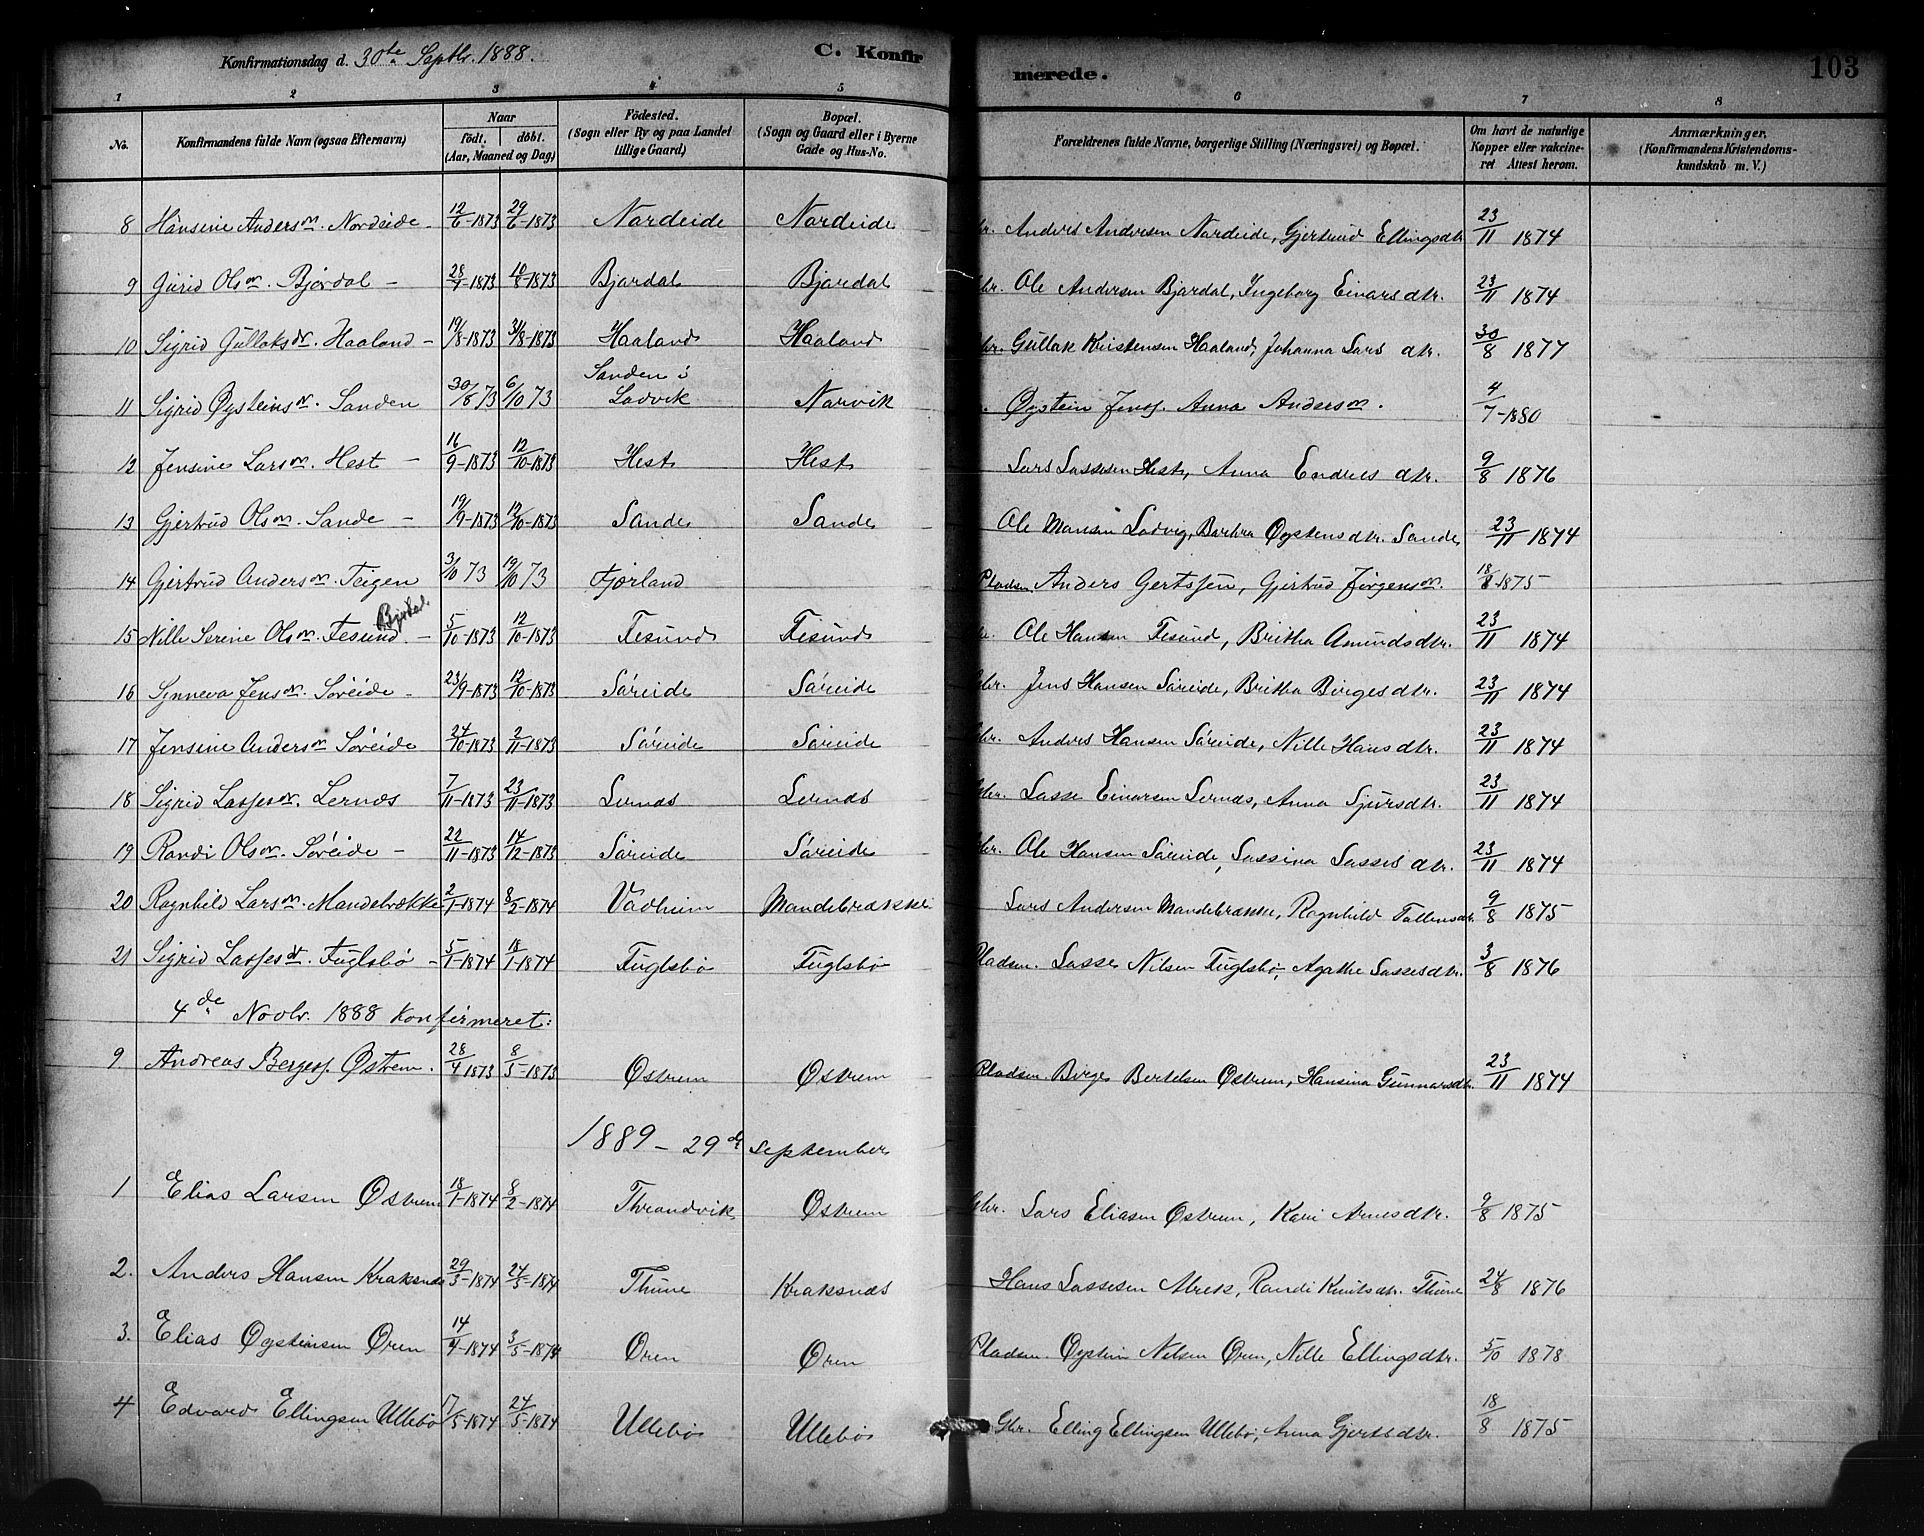 Konfirmationsdag d. 30te Septbr. 1888. C. Konfir merede. 103
1 2 3 4 5 6 7 8
No. Konfirmandens fulde Navn (ogsaa Efternavn) Naar födt. döbt. (Aar, Maaned og Dag) Födested. (Sogn eller By og paa Landet tillige Gaard.) Bopæl. (Sogn og Gaard eller i Byerne Gade og Hus-No. Forældrenes fulde Navne, borgerlige Stilling (Næringsvei) og Bopæl. Om havt de naturlige Kopper eller vakcineret Attest herom. Anmærkninger. (Konfirmandens Kristendomskundskab m. V.)
8 Hansine Andersdtr. Nordeide 12/6-1873 29/6-1873 Nordeide Nordeide Gbr. Anders Andersen Nordeide, Gjertrud Ellingsdtr 23/11 1874
9 Gurid Olsdtr. Bjørdal 28/7-1873 10/8-1873 Bjørdal Bjørdal Gbr. Ole Andersen Bjørdal, Ingeborg Einarsdtr. 23/11 1874
10 Sigrid Gullaksdr. Haaland 19/8-1873 31/8-1873 Haaland Haaland Gbr. Gullak Kristensen Haaland, Johanna Lars dtr. 30/8 1877
11 Sigrid Øysteinsdr. Sanden 30/8 73 6/10 73 Sanden i Ladvik Narvik Øystein Jensf. Anna Andersdr. 4/7-1880
12 Jensine Larsdr. Hest 16/9-1873 12/10-1873 Hest Hest Lars Lassesen Hest, Anna Endres dtr. 9/8 1876
13 Gjertrud Olsdr. Sande 19/9-1873 12/10-1873 Sande Sande Ole Monsen Ladvig, Barbra Øystensdtr. Sande 23/11 1874
14 Gjertrud Andersdr. Teigen 3/10 73 19/10 73 Fjørland Pladsm. Anders Gertsfen, Gjertrud Jørgensdr. 18/8 1875
Bjørdal.
15 Nille Serine Olsdr. Fesund 5/10-1873 12/10-1873 Fesund Fesund Ole Hansen Fesund, Britha Amundsdtr. 23/11 1874
16 Synneva Jensdr. Søreide 23/9-1873 12/10-1873 Søreide Søreide Gbr. Jens Hansen Søreide, Britha Birgesdtr. 23/11 1874
17 Jensine Andersdr Søreide 24/10-1873 2/11-1873 Søreide Søreide Gbr. Anders Hansen Søreide, Nille Hansdtr. 23/11 1874
18 Sigrid Lassesdr. Lernæs 7/11-1873 23/11-1873 Lernæs Lernæs Gbr. Lasse Einarsen Lernæs, Anna Sjursdtr. 23/11 1874
19 Randi Olsdr. Søreide 22/11-1873 14/12-1873 Søreide Søreide Gbr. Ole Hansen Søreide, Lassina Lasses dtr. 23/11 1874
20 Ragnhild Larsdr. Mandebrække 2/1-1874 8/2-1874 Vadheim Mandebrække Lars Andersen Mandebrække, Ragnhild Tollensdr 9/8 1875
21 Sigrid Lassesdt. Fuglsbø 5/1-1874 18/1-1874 Fuglsbø Fuglsbø Pladsm. Lasse Nilsen Fuglsbø, Agathe Lassesdtr. 3/8 1876
4de Novbr. 1888 Konfirmeret:
9 Andreas Bergesf. Østrem. 28/4 1873 8/5-1873 Østrem Østrem Pladsm. Birge Bertelsen Østrem, Hansina Gunnarsdtr. 23/11 1874
1889 - 29de September
1 Elias Larsen Østrem 18/1-1874 8/2-1874 Thrandvik Østrem Gbr. Lars Eliasen Østrem, Kari Arnesdtr. 9/8 1875
2. Anders Hansen Kraksnæs 29/3-1874 24/5-1874 Thune Kraksnæs Hans Lassesen Alrek, Randi Knutsdtr. Thune 24/8 1876
3. Elias Øysteinsen Øren 14/4-1874 3/5-1874 Øren Øren Pladsm. Øystein Nilsen Øren, Nille Ellingsdtr. 5/10 1878
4 Edvard Ellingsen Ullebø 17/5-1874 24/5-1874 Ullebø Ullebø Gbr. Elling Ellingsen Ullebø, Anna Gjertsdtr. 18/8 1875